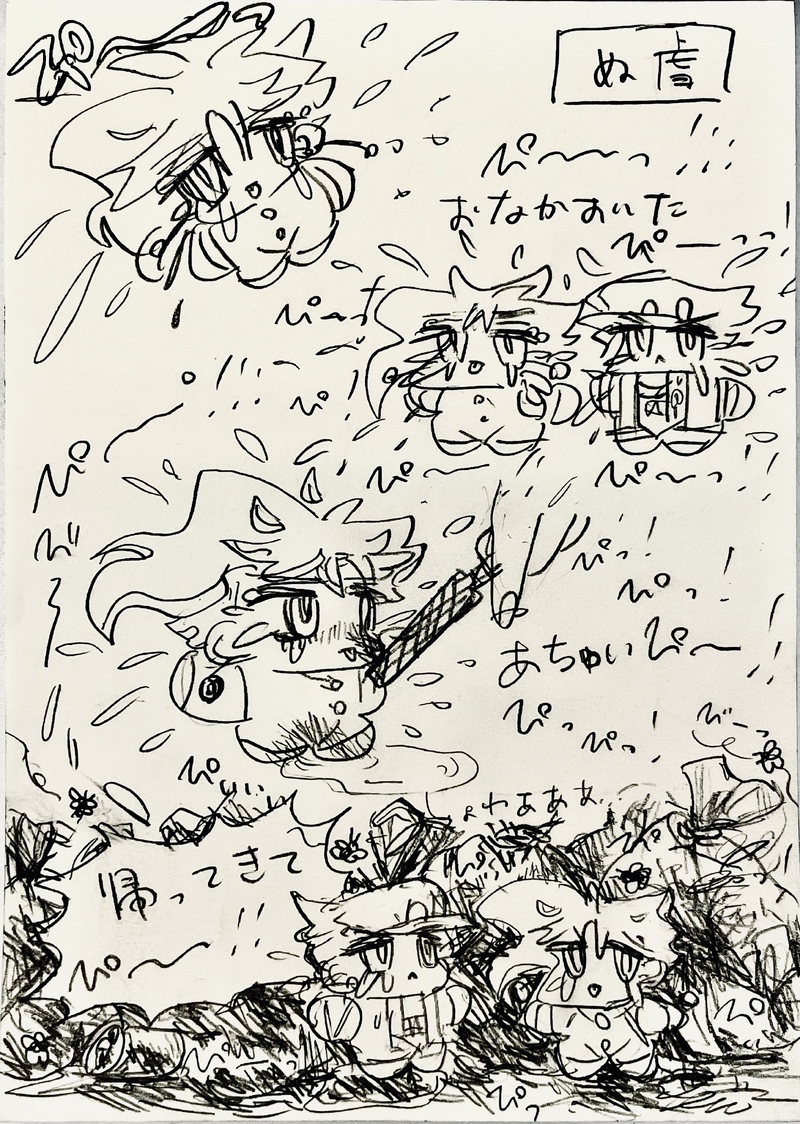 ぬ虐
ぴ〜〜っ!!!
おなかあいた
ぴーーっ!
ぴーっ
ぴ
ぴ〜
ぴ〜っ!!
ぴ
ぴ
〜
ぴっ!
ぴっ!
あちゅいぴ〜!
ぴっ
ぴっ!
びーっ
ぴぃぃ
ょわあああ
帰ってきて
ぴ〜!!
ぴっ